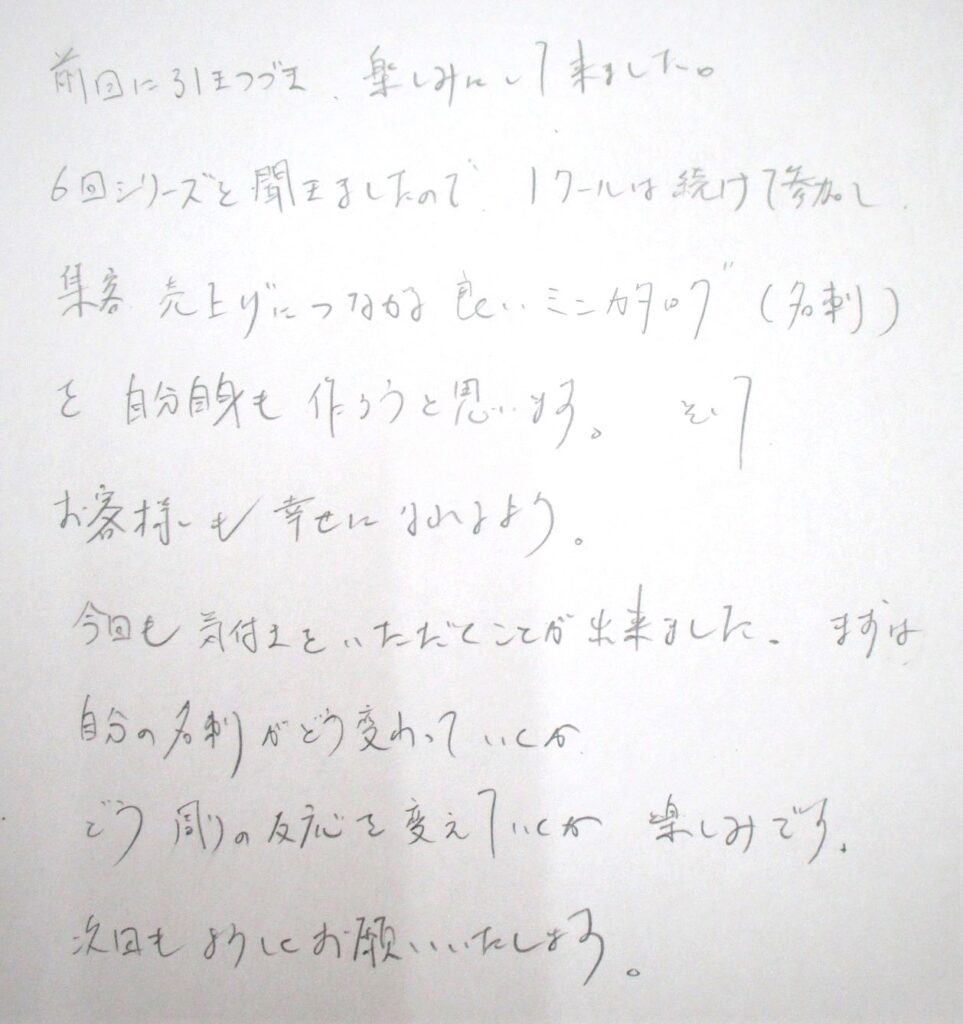 前回に引きつづき、楽しみにして来ました。
6回シリーズと聞きましたので、1クールは続けて参加し、
集客 売上げにつながる良いミニカタログ(名刺)
を 自分自身も 作ろうと思います。 そして
お客様も 幸せになれるよう。
今回も 気付きをいただくことが出来ました。 まずは
自分の名刺がどう変わっていくか
どう 周りの反応を変えていくか 楽しみです。
次回もよろしくお願いいたします。